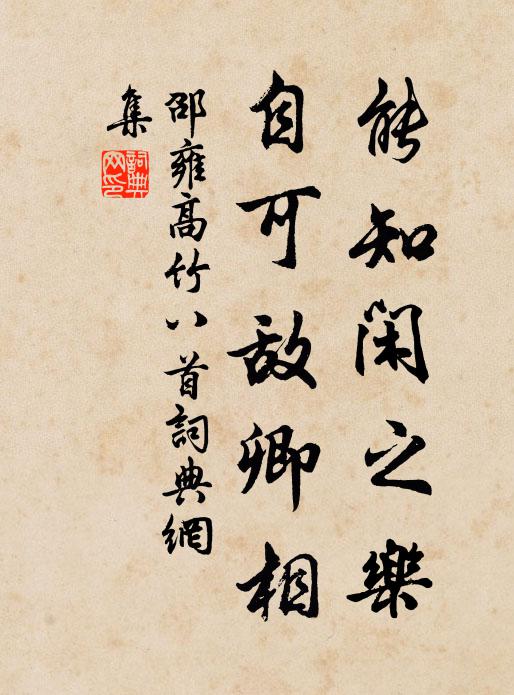 能知閑之樂
自可敵卿相
邵雍高竹八首詞典網
集
詞典
网印